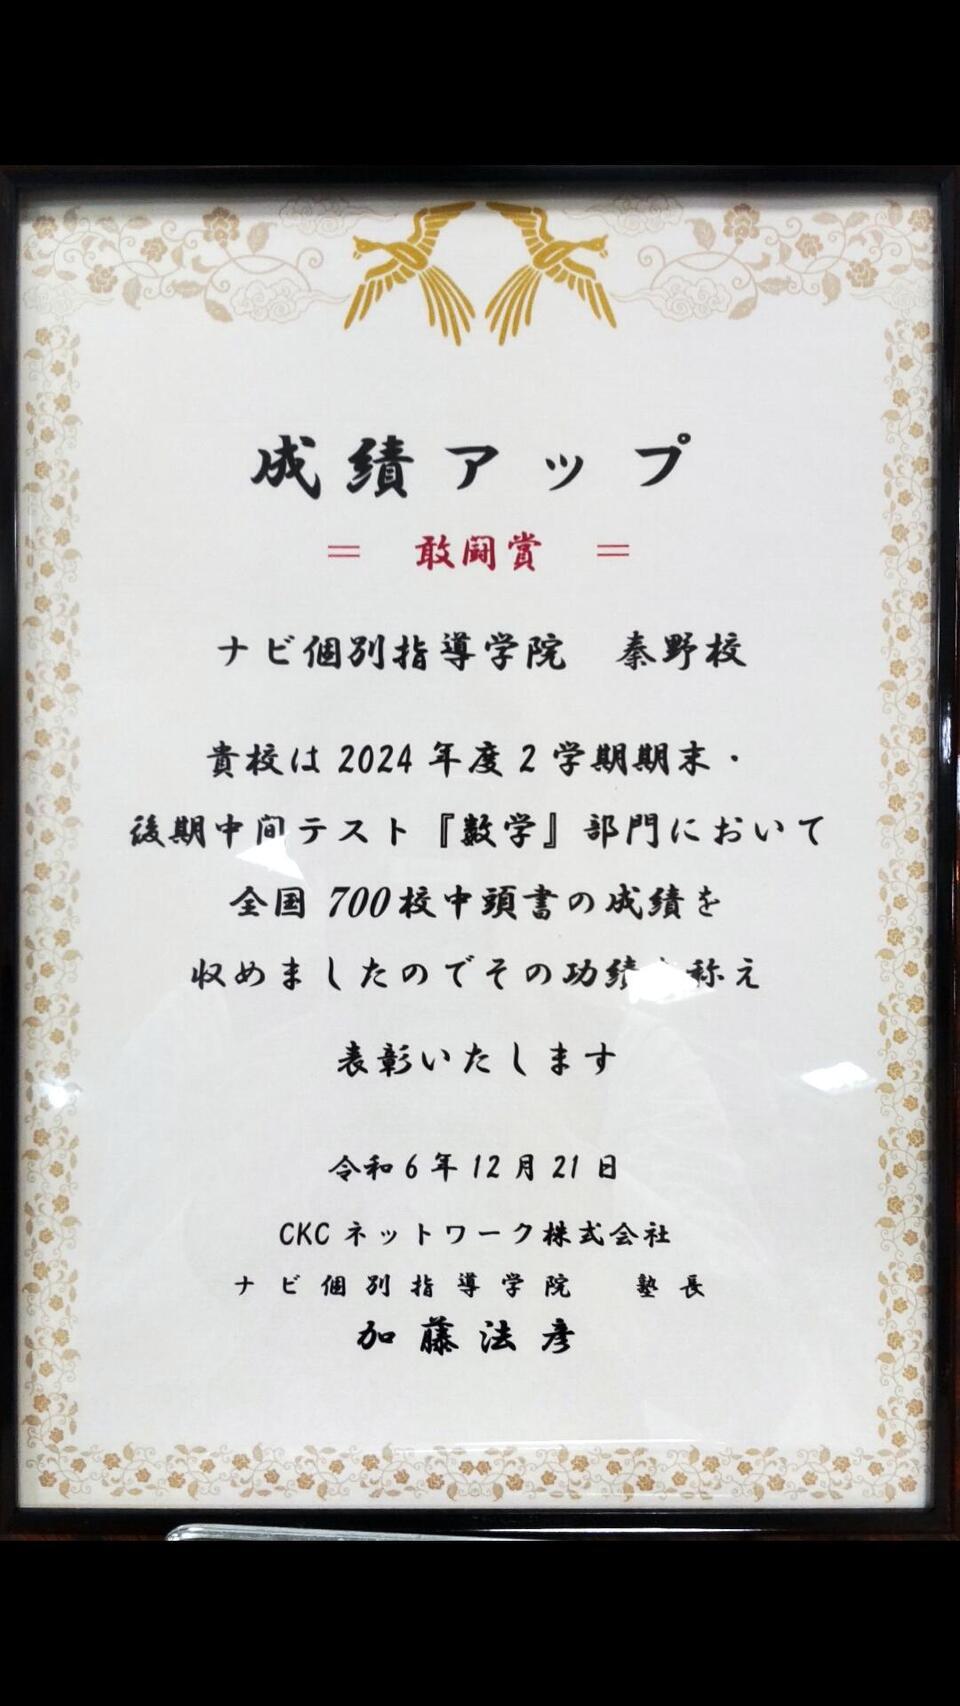 成績アップ
＝　敢闘賞　＝
ナビ個別指導学院　秦野校
貴校は2024年度2学期期末・
後期中間テスト『数学』部門において
全国700校中頭書の成績を
収めましたのでその功績を称え
表彰いたします
令和6年12月21日
CKCネットワーク株式会社
ナビ個別指導学院　塾長
加藤法彦